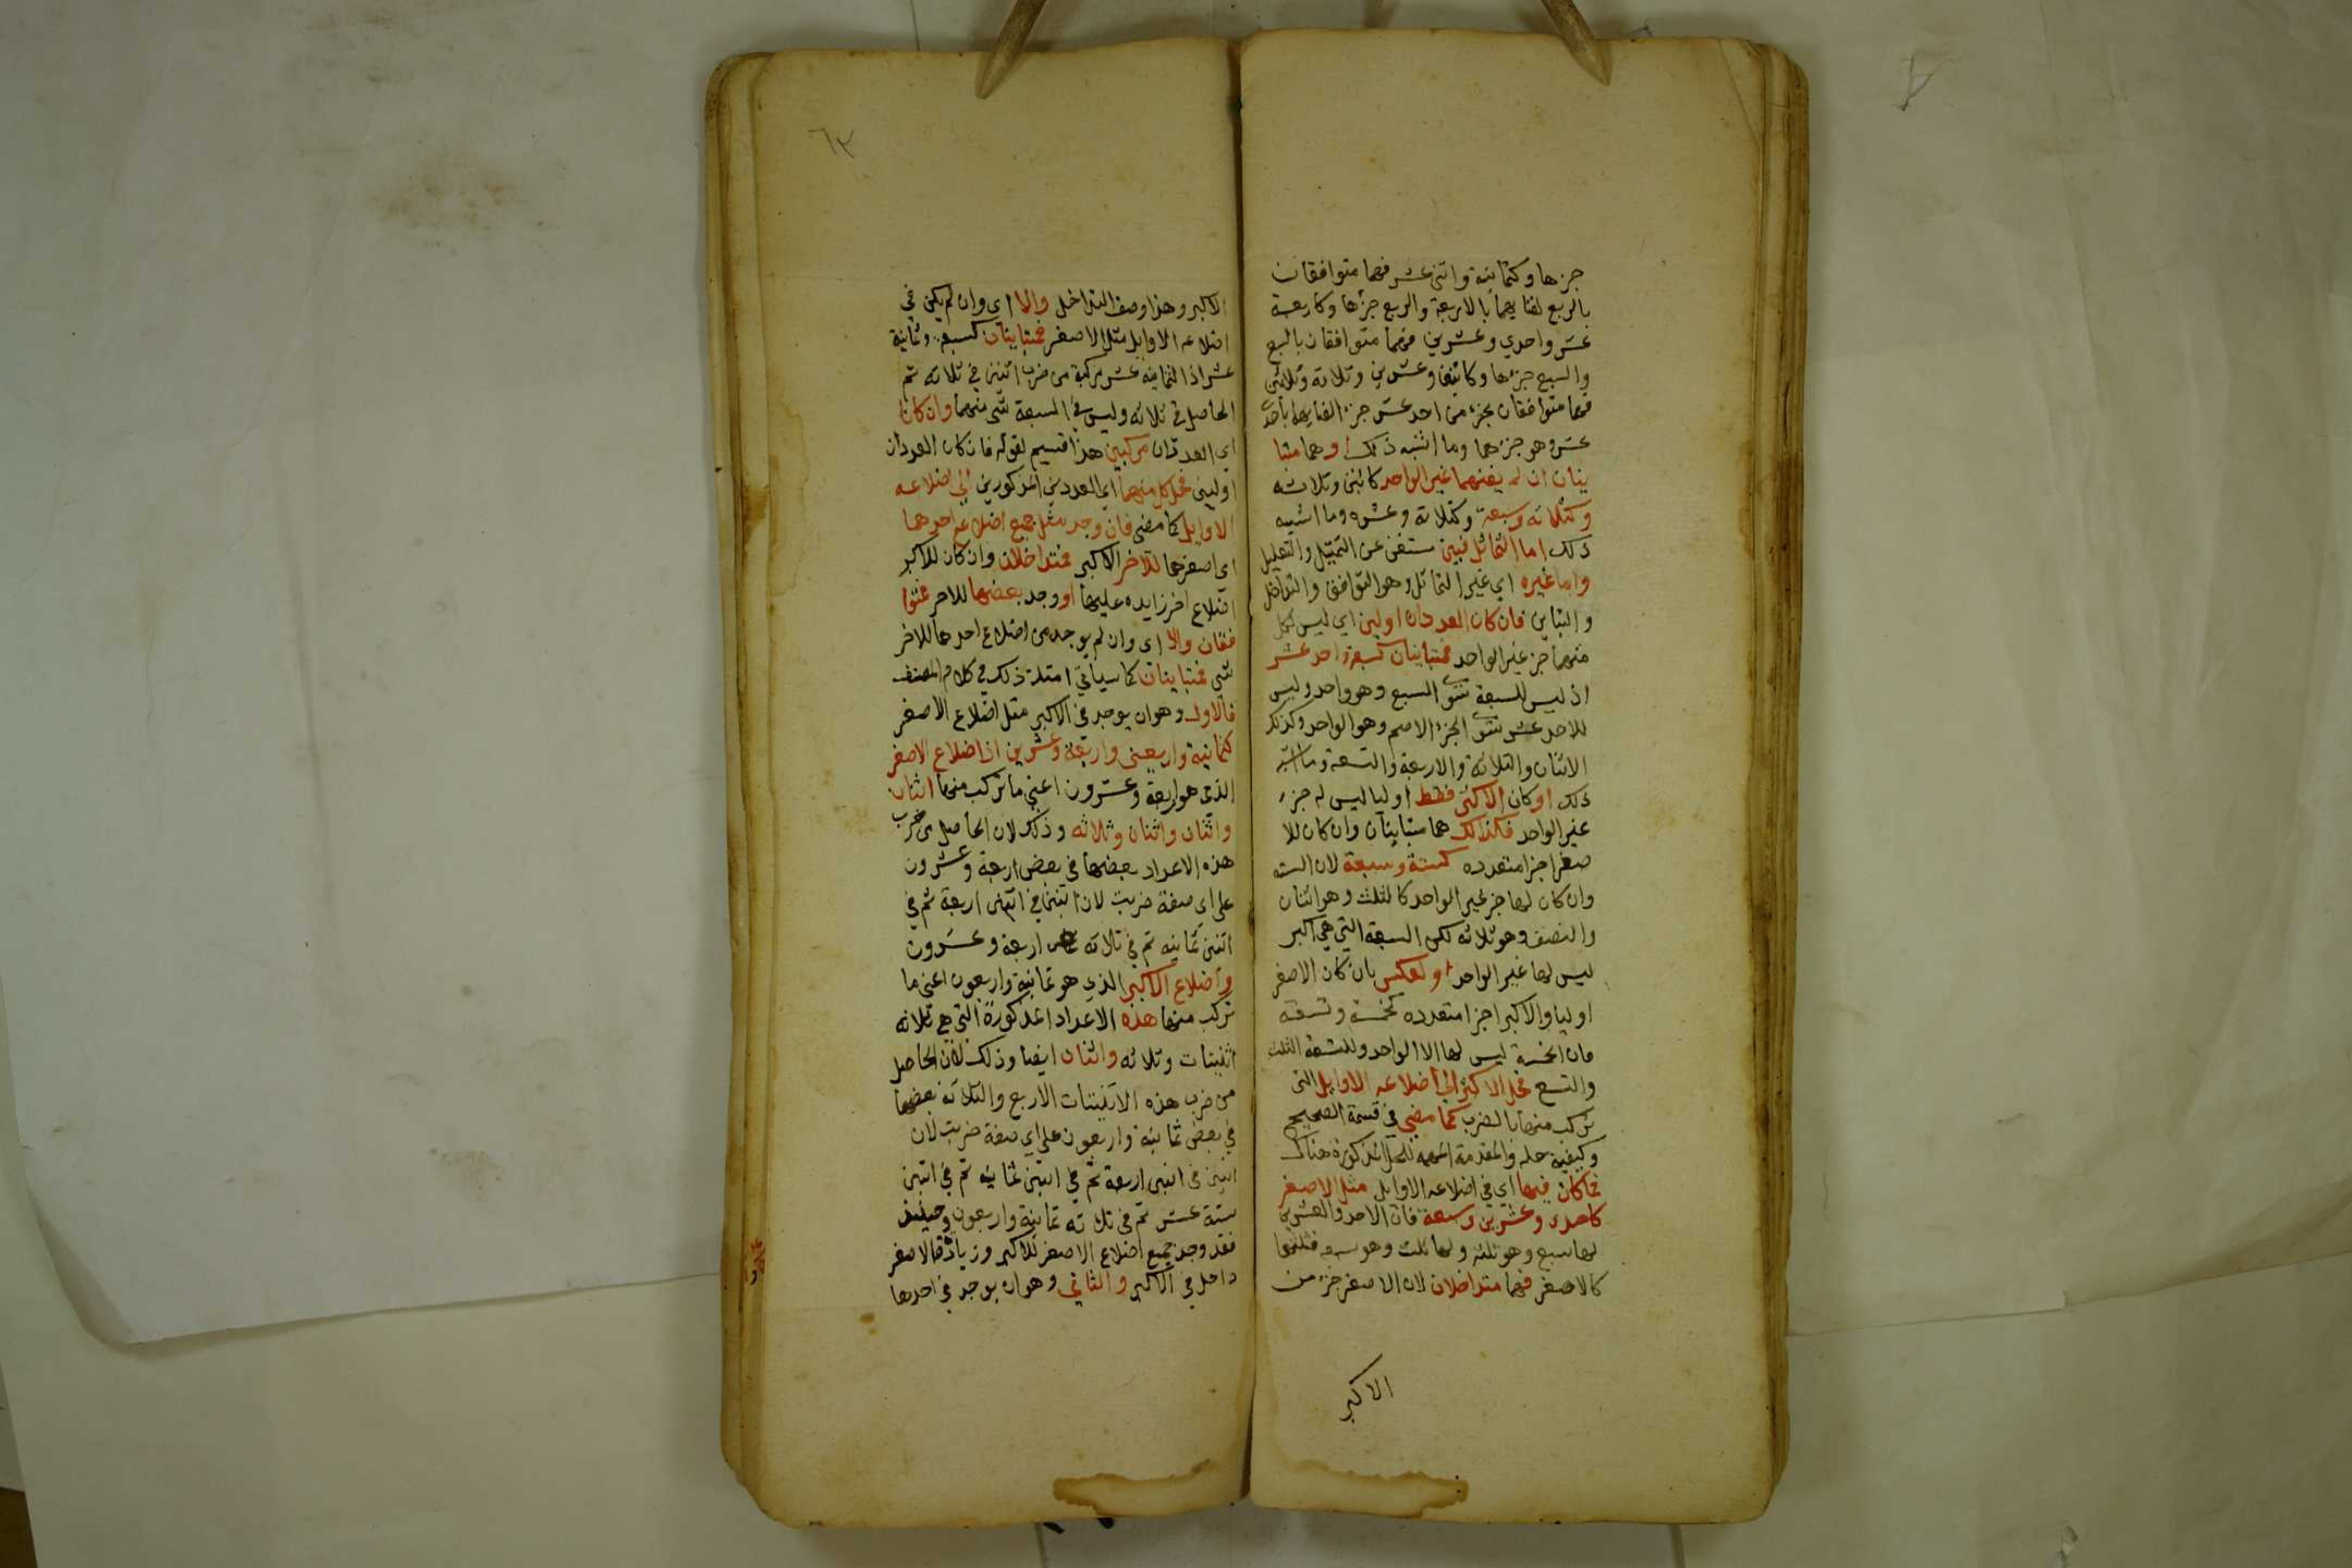 جزها وكثمانية واثنى عشر فهما متوافقان
بالربع لفنايهما بالاربعة والربع جزءها وكاربعة
عشر واحدي وعشرين فهما متوافقان بالسبع
والسبع جزءها وكاثنين وعشرين وثلاثة وثلاثين
فهما متوافقان بجزء من احد عشر جزء لفنايهما باحد
عشر وهو جزءهما وما اشبه ذلك او هما متبا
ينان ان لم يفنهما غير الواحد كاثنين وثلاثه
وكثلاثه وسبعة وكثلاثة وعشره وما اشبه
ذلك اما التماثل فبين مستغن عن التمثيل والتعليل
واما غيره اي غير التماثل وهو التوافق والتداخل
والتباين فان كان العددان اولين اي ليس لكل
منهما جز غير الواحد فمتباينان كسبعة واحد عشر
اذ ليس للسبعة سوى السبع وهو واحد وليس
للاحد عشر سوى الجزء الاصم وهو الواحد وكذلك
الاثنان والثلاثة والاربعة والتسعة وما اشبه
ذلك او كان الاكبر فقط اوليا ليس له جزء
غير الواحد فكذلك هما متباينان وان كان للا
صغر اجزا متعدده كستة وسبعة لان السته
وان كان لها جز غير الواحد كالثلث وهو اثنان
والنصف وهو ثلاثه لكن السبعة التي هي اكبر
ليس لها غير الواحد او بعكس بان كان الاصغر
اوليا والاكبر اجزا متعدده كخمسة وتسعة
فان الخمسة ليس لها الا الواحد وللتسعة الثلث
والتسع فحل الاكبر الي اضلاعه الاوايل التى
تركب منها بالضرب كما مضى في قسمة الصحيح
وكيفية حله والمقدمة المهمه للحل المذكورة هناك
فما كان فيها اي في اضلاعه الاوايل مثل الاصغر
كاحدى وعشرين وسبعة فان الاحد والعشرين
لها سبع وهو ثلثه ولها ثلث وهو سبعه فثلثها
كالاصغر فهما متداخلان لان الاصغر جزء من
الاكبر
٦٣
الاكبر وهذا وصف التداخل والا اي وان لم يكن في
اضلاعه الاوايل مثل الاصغر فمتباينان كسبعة وثمانية
عشر اذ الثمانيه عشر مركبة من ضرب اثنين في ثلاثه ثم
الحاصل في ثلاثه وليس في السبعة شى منهما وان كانا
اي العددان مركبين هذا قسيم لقوله فان كان العددان
اولين فحل كل منهما اي العددين المذكورين الي اضلاعه
الاوايل كما مضى فان وجد مثل جميع اضلاع احدهما
اى اصغرهما للآخر الاكبر فمتداخلان وان كان للاكبر
اضلاع اخر زايده عليها او وجد بعضها للاخر فمتوا
فقان والا اى وان لم يوجد من اضلاع احدهما للاخر
شى فمتباينان كما سياتي امثلة ذلك في كلام المصنف
فالاول وهو ان يوجد في الاكبر مثل اضلاع الاصغر
كثمانية واربعين واربعة وعشرين اذ اضلاع الاصغر
الذى هو اربعة وعشرون اعني ما تركب منها اثنان
واثنان واثنان وثلاثه وذلك لان الحاصل من ضرب
هذه الاعداد بعضها في بعض اربعة وعشرون
على اى صفة ضربت لان اثنين في اثنين اربعة ثم في
اثنين ثمانيه ثم في ثلاثه اربعة وعشرون
واضلاع الاكبر الذي هو ثمانية واربعون اعني ما
تركب منها هذه الاعداد المذكورة التي هي ثلاثه
اثنينات وثلاثه واثنان ايضا وذلك لان الحاصل
من ضرب هذه الاثنينات الاربع والثلاثة بعضها
في بعض ثمانية واربعون على اي صفة ضربت لان
اثنين في اثنين اربعة ثم في اثنين ثمانيه ثم في اثنين
ستة عشر ثم في ثلاثه ثمانية واربعون وحينئذ
فقد وجد جميع اضلاع الاصغر للاكبر وزيادة فالاصغر
داخل في الاكبر والثاني وهو ان يوجد في احدهما